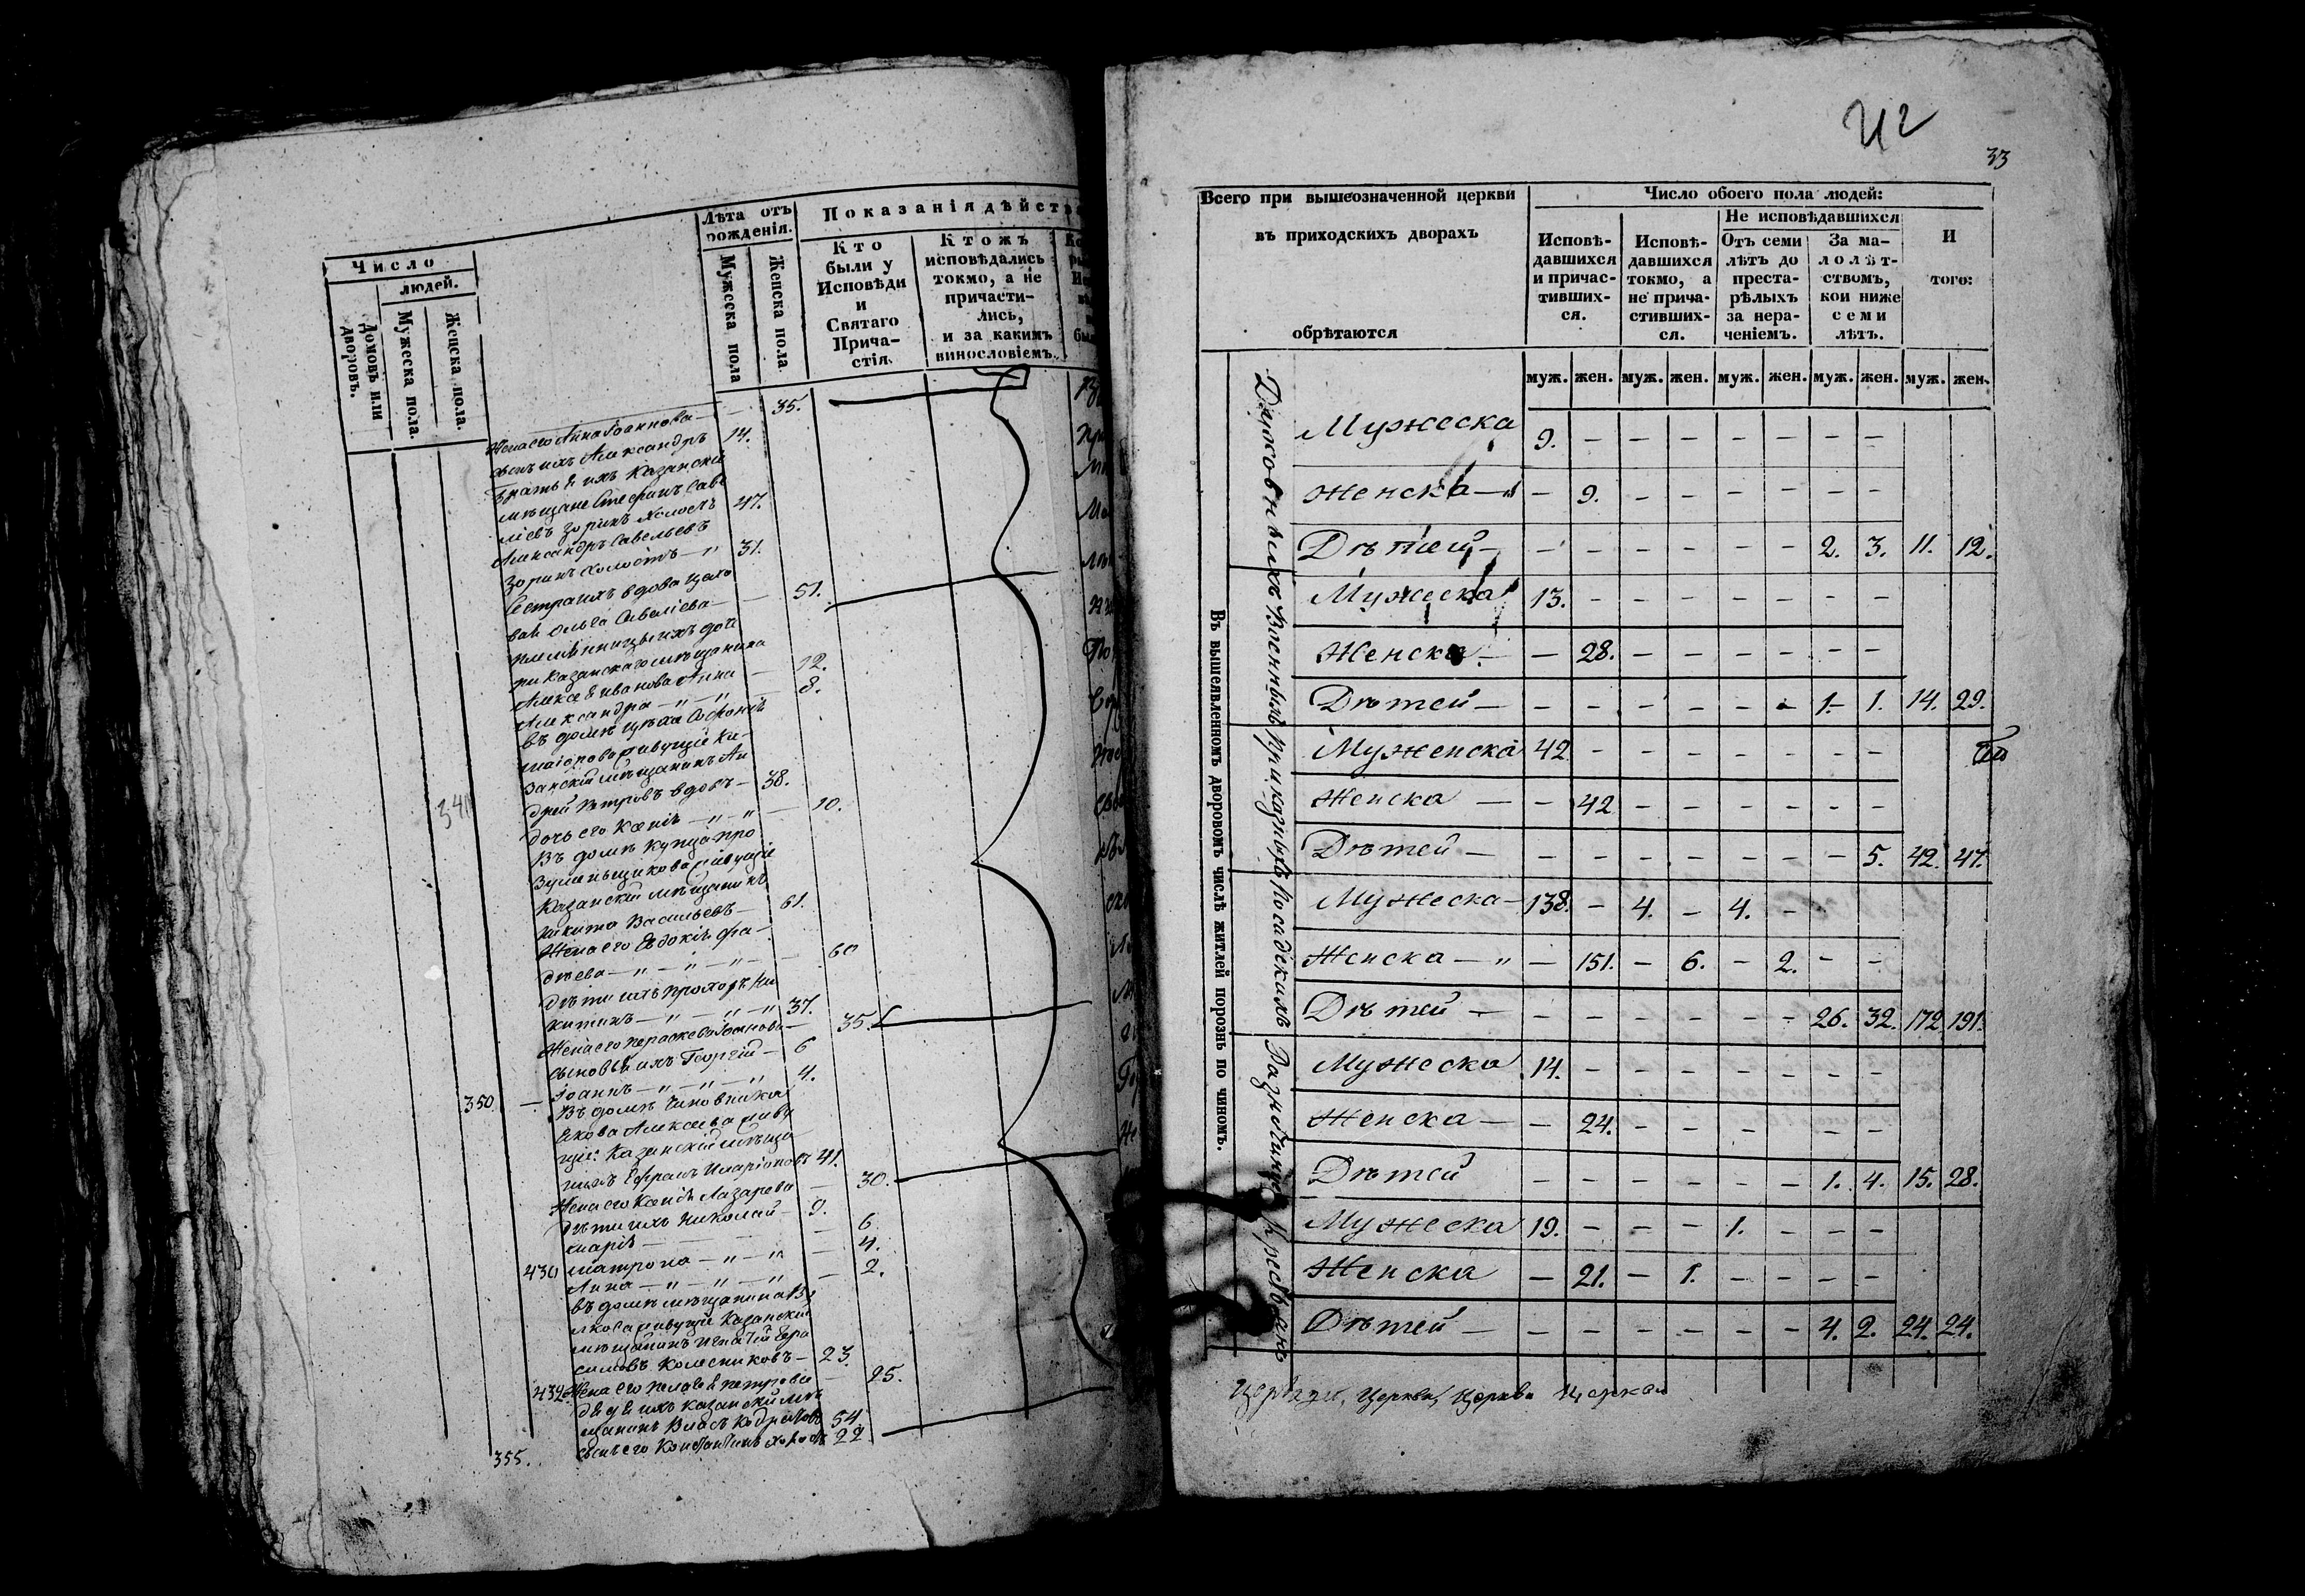 Число
людей.
Домовъ или дворовъ.
Мужеска пола.
Женска пола.
Лѣта отъ рожденія.
Мужеска пола
Женска пола
Показанія дѣйств
Кто были у Исповѣди и Святаго Причастія.
Ктожъ исповѣдались токмо, а не причастились, и за какимъ винословіемъ.
Жена его Анна Іоаннова — — 35.
сынъ ихъ Александръ 14.
Братья ихъ Казанскіе
мѣщане Стефанъ Саве
ліевъ Зоринъ холостъ 47.
Александръ Савельевъ
Зоринъ холостъ — " 31.
Сестра ихъ вдова цехо
вая Ольга Савеліева — — 51.
племянницы ихъ доче
ри Казанскаго мѣщанина
Алексея Иванова Анна — 12.
Александра — " — " — 8.
въ домѣ
живущіе Ка-
занскій мѣщанинъ Ан
дрей Петровъ вдовъ — 38.
дочь его Ксенія — " — " — 10.
Въ домѣ купца Про
живущіе
Казанскій мѣщанинъ
Никита Васильевъ — 61.
Жена его Евдокія Фа-
дѣева — " — " — " — 60
дѣти ихъ Прохоръ Ни
китинъ — " — " — " 37.
Жена его Парасковья Іоаннова — 35.
сыновья ихъ Георгій — 6
Іоаннъ — " — " — " 4.
350 — Въ домѣ Чиновника
Якова Алексеева живу
щіе: Казанскій мѣща
нинъ Ефремъ Иларіоновъ 41.
Жена его Ксенія Лазарева — 30.
дѣти ихъ Николай — 9.
Марія — 6.
430 Матрона — " — " — 4.
Анна — " — " — " — 2.
въ домѣ мѣщанина
живущіе Казанскій
мѣщанинъ Игнатій Гера
симовъ Колесниковъ — 23.
432 Жена его Пелагея Петрова — 25.
дядя ихъ казанскій мѣ
щанинъ Власъ 54
355. сынъ его Константинъ холостъ 22
33
Всего при вышеозначенной церкви
въ приходскихъ дворахъ
обрѣтаются
Число обоего пола людей:
Исповѣдавшихся и причастившихся.
Исповѣдавшихся токмо, а не причастившихся.
Не исповѣдавшихся
Отъ семи лѣтъ до престарѣлыхъ за нераченіемъ.
За малолѣтствомъ, кои ниже семи лѣтъ.
И того:
муж. жен. муж. жен. муж. жен. муж. жен. муж. жен.
Въ вышеявленномъ дворовомъ числѣ жителей порознь по чиномъ.
Духовныхъ
Мужеска 9. — — — — — — —
Женска — " — 9. — — — — — —
Дѣтей — — — — — — — 2. 3. 11. 12.
Военныхъ
Мужеска 13. — — — — — — —
Женска — — 28. — — — — — —
Дѣтей — — — — — — — 1. 1. 14. 29.
Приказныхъ
Муженска 42 — — — — — — —
Женска — — 42 — — — — — —
Дѣтей — — — — — — — — 5. 42. 47.
Посадскихъ
Мужеска — 138. — 4. — 4. —
Женска — " — 151. — 6. — 2. — —
Дѣтей — — — — — — — 26. 32. 172 191.
Разночинцовъ
Мужеска 14. — — — — — — —
Женска — — 24. — — — — — —
Дѣтей — — — — — — 1. 4. 15. 28.
Крестьянъ
Мужеска 19. — — — 1. — — —
Женска — 21. — 1. — — — —
Дѣтей — — — — — — — 4. 2. 24. 24.
Церкви, Церкви, Церкви